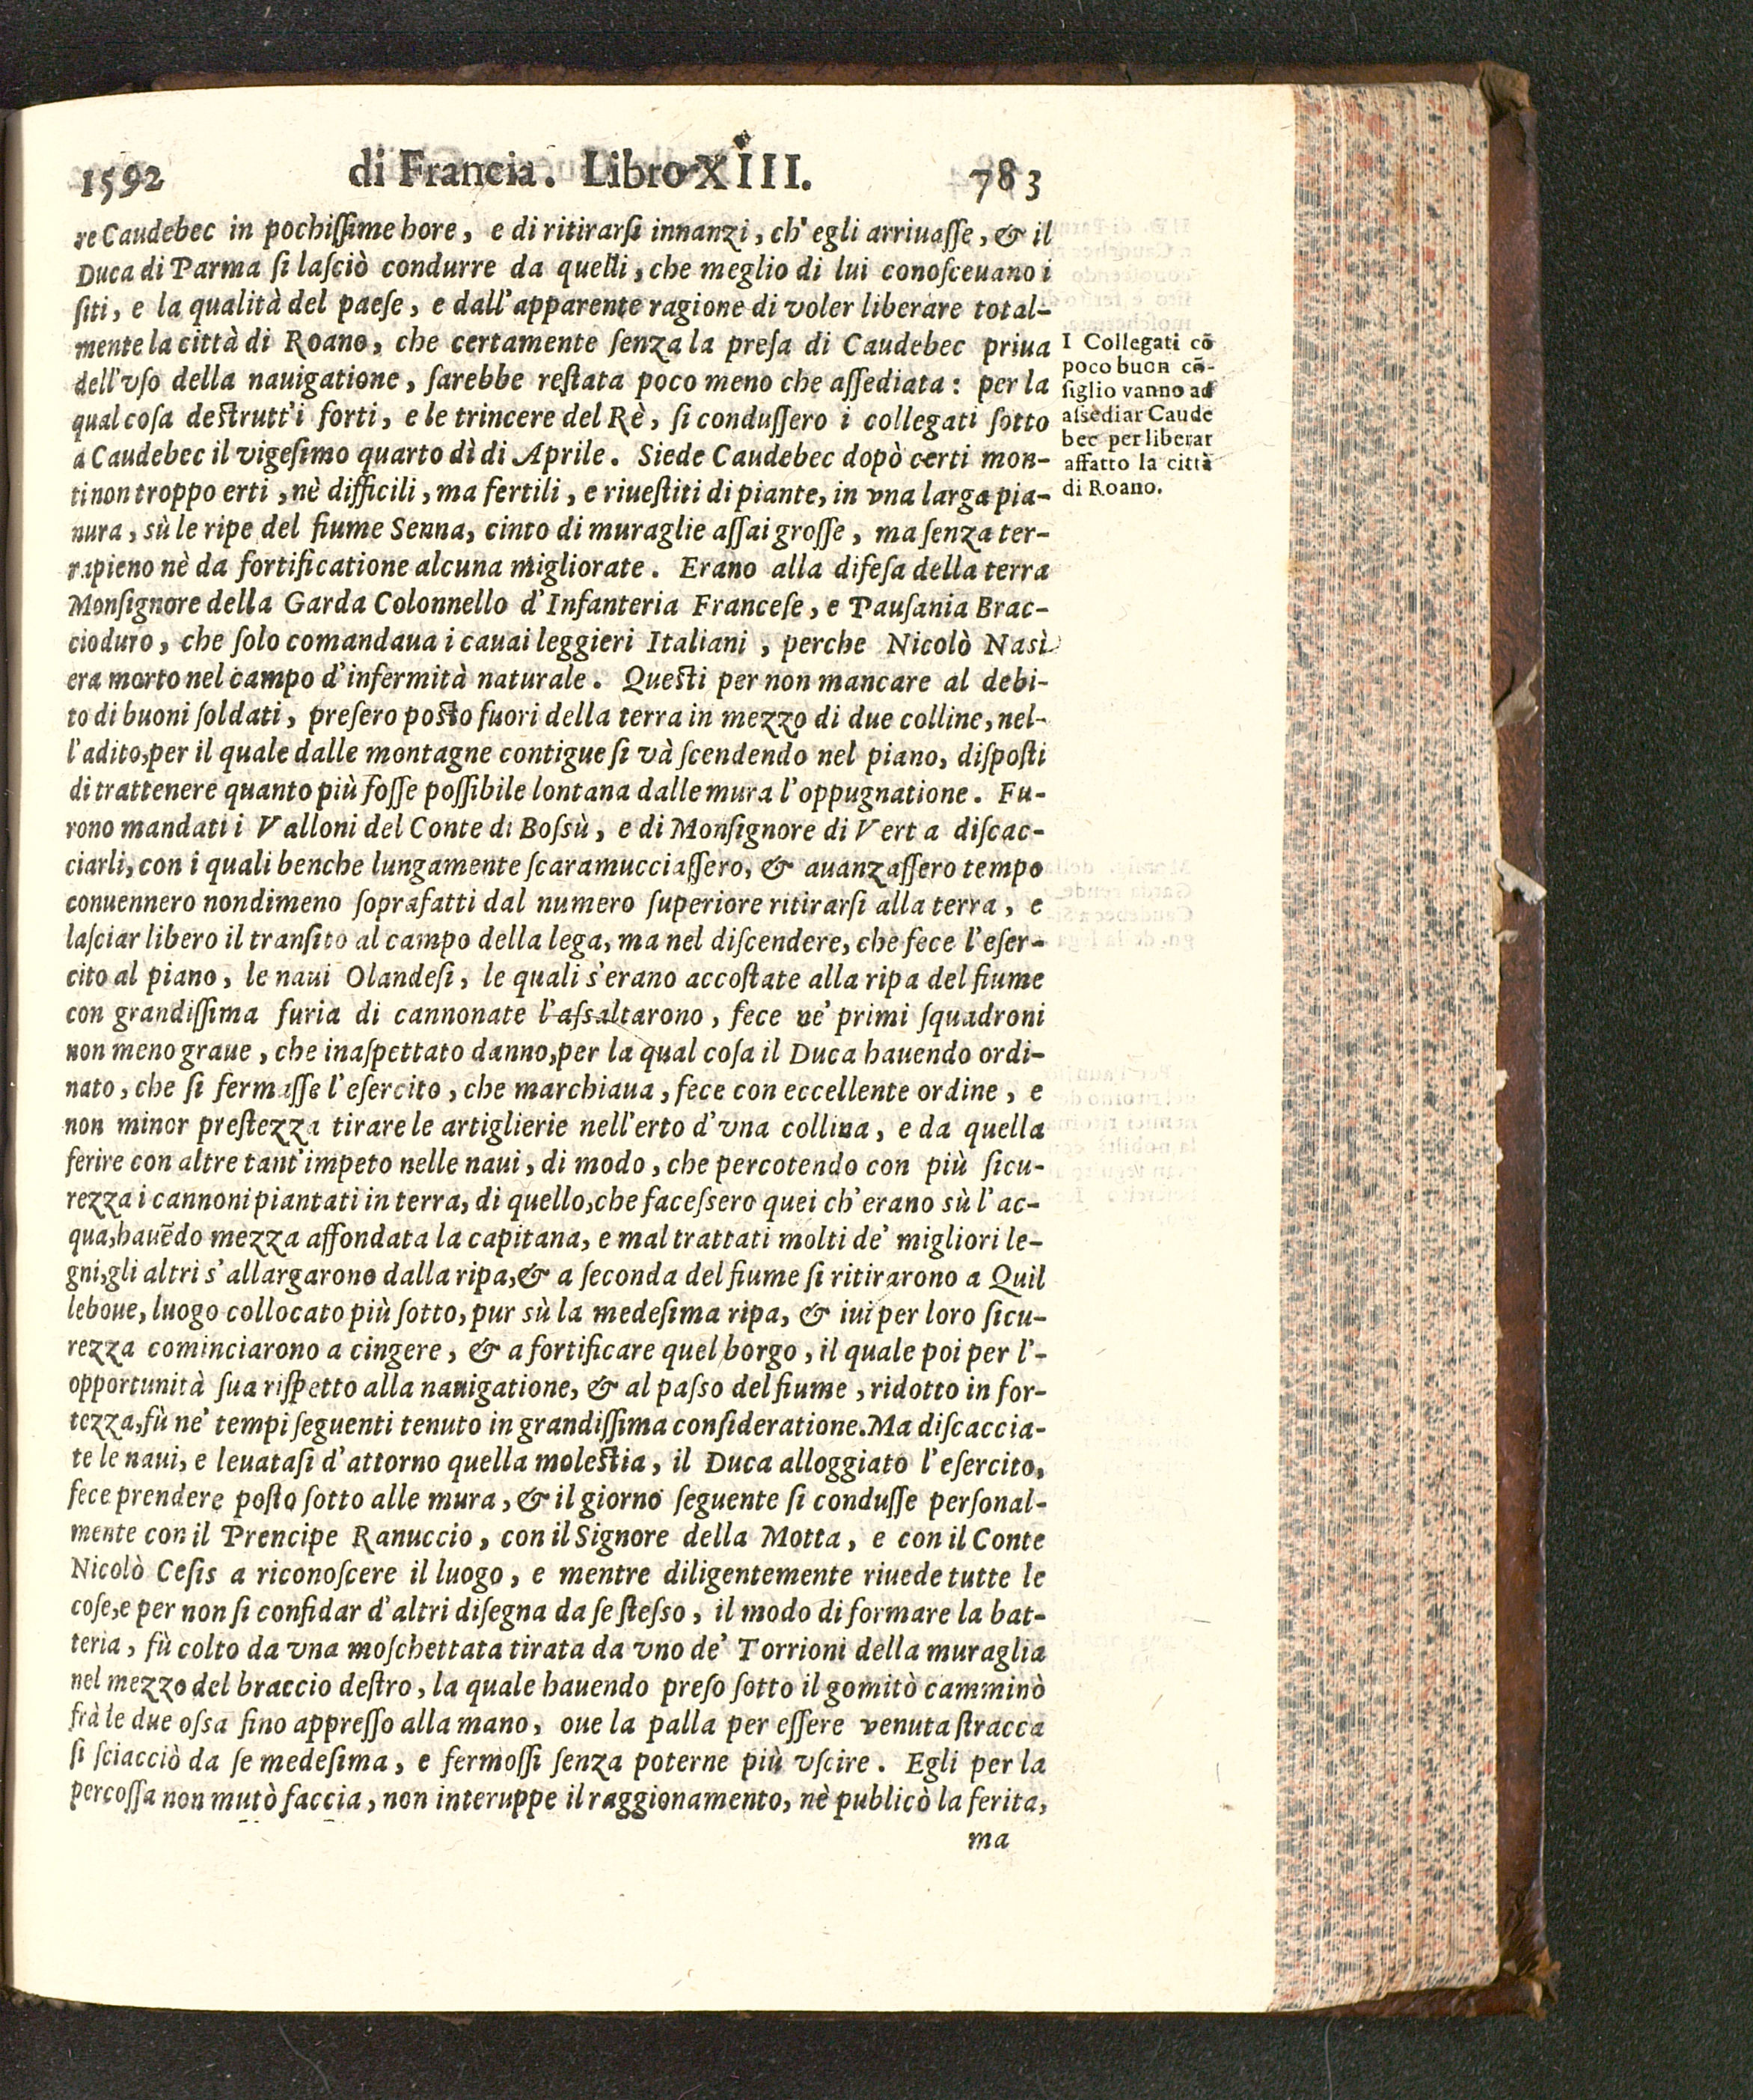 1592 di Francia. Libro XIII. 783
re Caudebec in pochiſſime hore, e di ritirarſi innanzi, ch' egli arriuaſſe, & il
Duca di Parma ſi laſciò condurre da quelli, che meglio di lui conoſceuano i
ſiti, e la qualità del paeſe, e dall'apparente ragione di voler liberare total-
mente la città di Roano, che certamente ſenza la preſa di Caudebec priua
dell'vſo della nauigatione, ſarebbe reſtata poco meno che aſſediata: per la
qual coſa deſtrutt'i forti, e le trincere del Rè, ſi conduſſero i collegati ſotto
a Caudebec il vigeſimo quarto dì di Aprile. Siede Caudebec dopò certi mon-
ti non troppo erti, nè difficili, ma fertili, e riueſtiti di piante, in vna larga pia-
nura, sù le ripe del fiume Senna, cinto di muraglie aſſai groſſe, ma ſenza ter-
rapieno nè da fortificatione alcuna migliorate. Erano alla difeſa della terra
Monſignore della Garda Colonnello d'Infanteria Franceſe, e Pauſania Brac-
cioduro, che ſolo comandaua i cauai leggieri Italiani, perche Nicolò Nasì
era morto nel campo d'infermità naturale. Queſti per non mancare al debi-
to di buoni ſoldati, preſero poſto fuori della terra in mezzo di due colline, nel-
l'adito, per il quale dalle montagne contigue ſi và ſcendendo nel piano, diſpoſti
di trattenere quanto più foſſe poſſibile lontana dalle mura l'oppugnatione. Fu-
rono mandati i Valloni del Conte di Boſsù, e di Monſignore di Vert a diſcac-
ciarli, con i quali benche lungamente ſcaramucciaſſero, & auanzaſſero tempo
conuennero nondimeno ſoprafatti dal numero ſuperiore ritirarſi alla terra, e
laſciar libero il tranſito al campo della lega, ma nel diſcendere, che fece l'eſer-
cito al piano, le naui Olandeſi, le quali s'erano accoſtate alla ripa del fiume
con grandiſſima furia di cannonate l'aſsaltarono, fece ne' primi ſquadroni
non meno graue, che inaſpettato danno, per la qual coſa il Duca hauendo ordi-
nato, che ſi fermaſſe l'eſercito, che marchiaua, fece con eccellente ordine, e
non minor preſtezza tirare le artiglierie nell'erto d'vna collina, e da quella
ferire con altre tant'impeto nelle naui, di modo, che percotendo con più ſicu-
rezza i cannoni piantati in terra, di quello, che faceſsero quei ch'erano sù l'ac-
qua, hauẽdo mezza affondata la capitana, e mal trattati molti de' migliori le-
gni, gli altri s'allargarono dalla ripa, & a ſeconda del fiume ſi ritirarono a Quil
leboue, luogo collocato più ſotto, pur sù la medeſima ripa, & iui per loro ſicu-
rezza cominciarono a cingere, & a fortificare quel borgo, il quale poi per l'-
opportunità ſua riſpetto alla nauigatione, & al paſso del fiume, ridotto in for-
tezza, fù ne' tempi ſeguenti tenuto in grandiſſima conſideratione. Ma diſcaccia-
te le naui, e leuataſi d'attorno quella moleſtia, il Duca alloggiato l'eſercito,
fece prendere poſto ſotto alle mura, & il giorno ſeguente ſi conduſſe perſonal-
mente con il Prencipe Ranuccio, con il Signore della Motta, e con il Conte
Nicolò Ceſis a riconoſcere il luogo, e mentre diligentemente riuede tutte le
coſe, e per non ſi confidar d'altri diſegna da ſe ſteſso, il modo di formare la bat-
teria, fù colto da vna moſchettata tirata da vno de' Torrioni della muraglia
nel mezzo del braccio deſtro, la quale hauendo preſo ſotto il gomitò camminò
frà le due oſsa fino appreſſo alla mano, oue la palla per eſſere venuta ſtracca
ſi ſciacciò da ſe medeſima, e fermoſſi ſenza poterne più vſcire. Egli per la
percoſſa non mutò faccia, non interuppe il raggionamento, nè publicò la ferita,
ma
I Collegati cõ
poco buon cõ-
ſiglio vanno ad
aſsediar Caude
bec per liberar
affatto la città
di Roano.